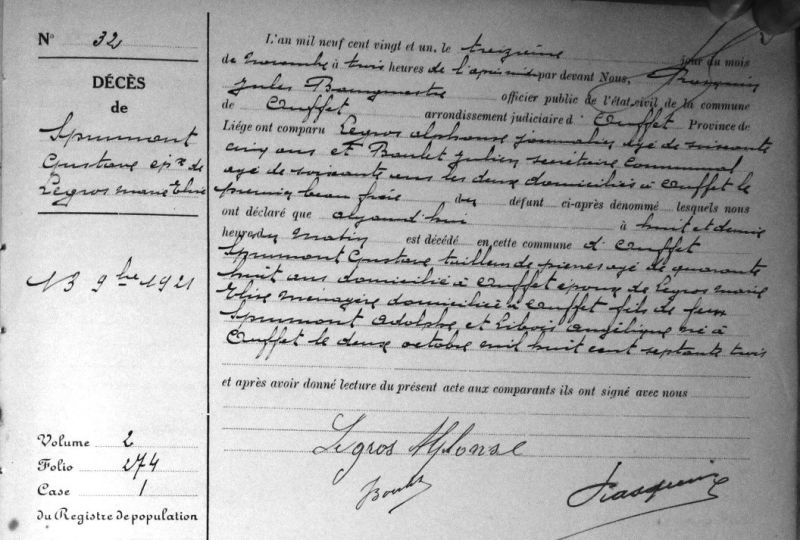 N° 32
DÉCÈS
de
Spriumont
Gustave ép.x de
Legros Marie Elise
13 9bre 1921
Volume 2
Folio 274
Case 1
du Registre de population
L'an mil neuf cent vingt et un, le treizième jour du mois
de Novembre à trois heures de l'après midi par devant Nous,
Jules officier public de l'état-civil de la commune
de Ouffet arrondissement judiciaire d' Ouffet Province de
Liége ont comparu Legros Alphonse journalier agé de soixante
cinq ans et Boulet Julien secrétaire communal
agé de soixante ans les deux domiciliés à Ouffet le
premier beau frère du défunt ci-après dénommé lesquels nous
ont déclaré que aujourd'hui à huit et demie
heures du matin est décédé en cette commune d' Ouffet
Sprumont Gustave tailleur de pierres agé de quarante
huit ans domicilié à Ouffet époux de Legros Marie
Elise ménagère domiciliée à Ouffet fils de feu
Sprumont Adolphe et Libois Angélique né à
Ouffet le deux octobre mil huit cent septante trois
et après avoir donné lecture du présent acte aux comparants ils ont signé avec nous
Legros Alfonse
Boulet